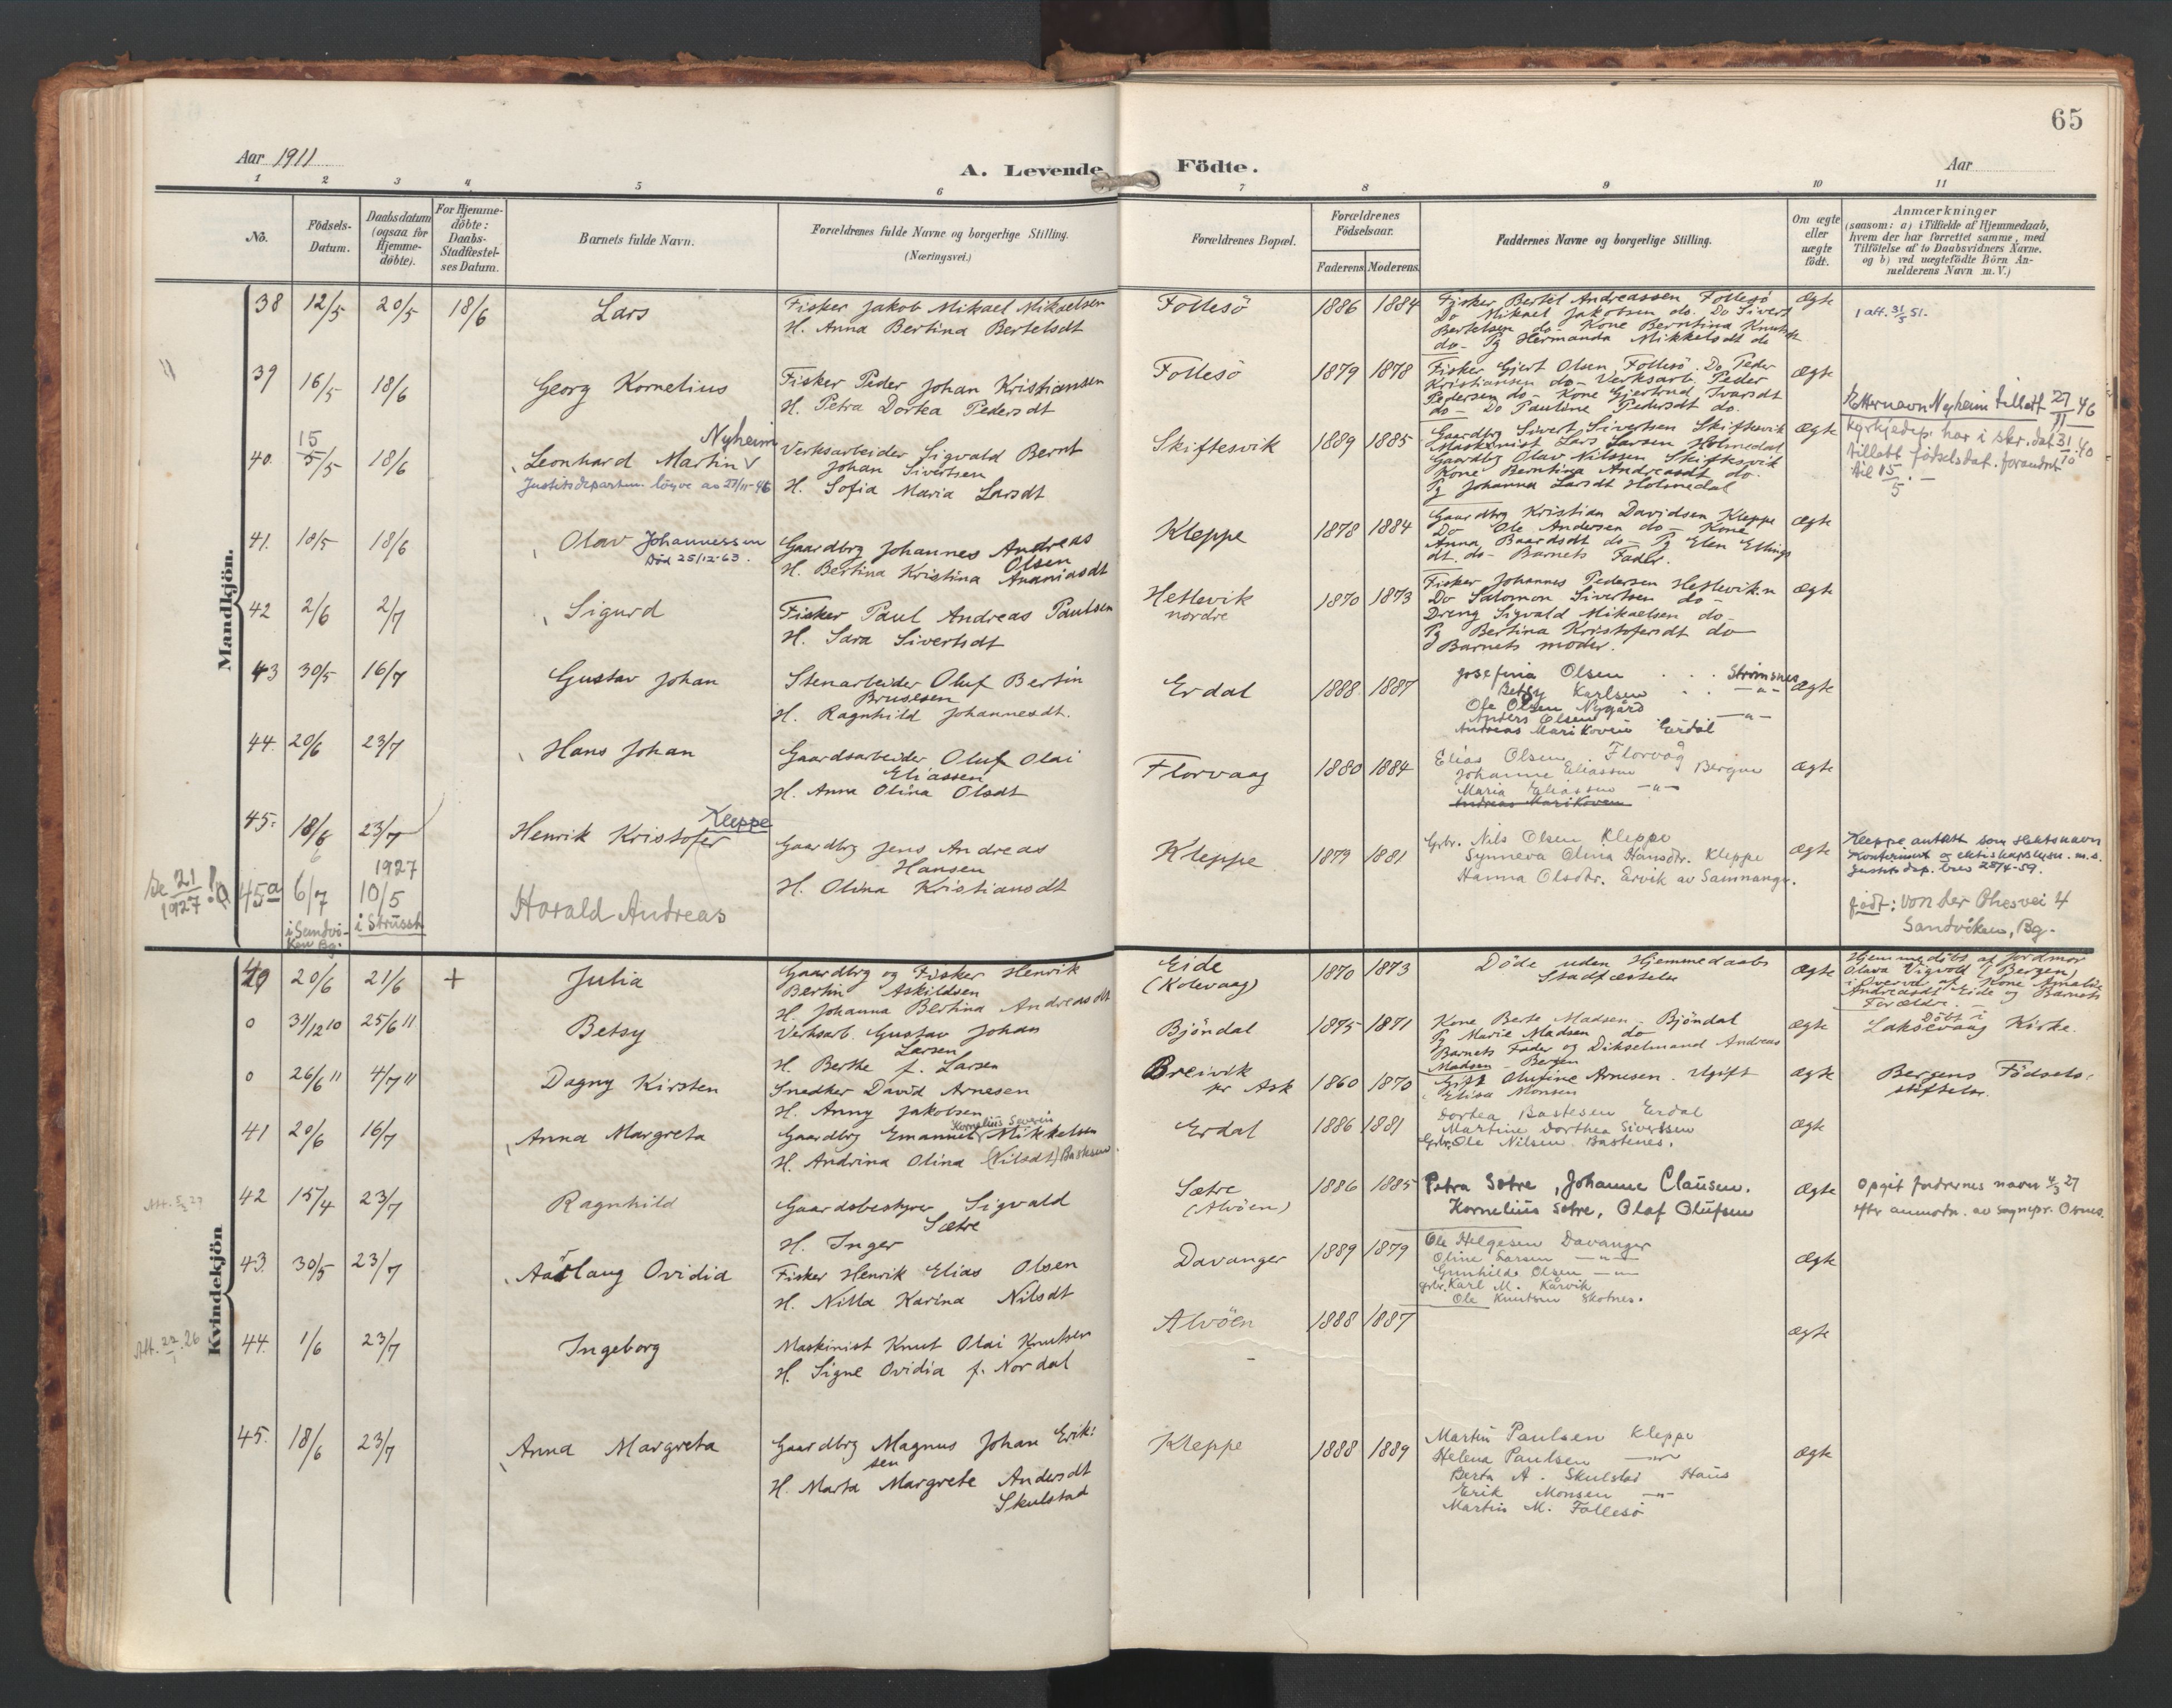 65
Aar 1911
A. Levende Födte.
Aar
1 2 3 4 5 6 7 8 9 10 11
No.
Födsels-Datum.
Daabsdatum (ogsaa for Hjemme-döbte).
For Hjemme-döbte: Daabs-Stadfæstel-ses Datum.
Barnets fulde Navn.
Forældrenes fulde Navne og borgerlige Stilling.
(Næringsvei.)
Forældrenes Bopæl.
Forældrenes Födselsaar.
Faderens Moderens
Faddernes Navne og borgerlige Stilling.
Om ægte eller uægte födt.
Anmærkninger
(saasom: a) i Tilfælde af Hjemmedaab,
hvem der har forrettet samme, med
Tilföielse af to Daabsvidners Navne.
og b) ved uægtefödte Börn An-
melderens Navn m. V.)
Mandkjön.
38 12/5 20/5 18/6 Lars
Fisker Jakob Mikael Mikaelsen
H. Anna Bertina Bertelsdt
Follesö 1886 1884
Fisker Bertel Andreassen Follesö
Do Mikael Jakobsen do. Do Sivert
Bertelsen do - Kone Berntina Knutsdt
do - Pg Hermanda Mikkelsdt do
Ægte
1 att. 31/5 51.
39 16/5 18/6 Georg Kornelius
Fisker Peder Johan Kristiansen
H. Petra Dortea Pedersdt
Follesö 1879 1878
Fisker Gjert Olsen, Follesö. Do Peder
Kristiansen do - Verksarb. Peder
Pedersen do - Kone Gjertrud Ivarsdt
do - Do Pauline Pedersdt do.
Ægte
40. 15/5 5/5 18/6 Leonhard Martin Nyheim
Justitsdepartem. löyve av 27/11-46
Verksarbeider Sigvald Bernt
Johan Sivertsen
H. Sofia Maria Larsdt
Skiftesvik 1889 1885
Gaardbrg Sivert Sivertsen Skiftesvik
Maskinist Lars Larsen Holmedal
Gaardbrg Olav Nilssen Skiftesvik
Kone Berntina Andreasdt do.
Pg Johanna Larsdt Holmedal
Ægte
Etternavn Nyheim tillatt 27/11 46
Kyrkjedep. har i skr. dat 31/10 40
tillatt fødselsdat. forandret
til 15/5. -
41. 18/5 18/6 Olav Johannessen
Död 25/12-63.
Gaardbrg Johannes Andreas
Olsen
H. Bertina Kristina Ananiasdt
Kleppe 1878 1884
Gaardbrg Kristian Davidsen Kleppe
Do Ole Andersen do - Kone
Anna Baardsdt do - Pg Elen Ellings
dt. do - Barnets Fader.
Ægte
42 2/6 2/7 Sigurd
Fisker Paul Andreas Paulsen
H. Sara Sivertsdt
Hellevik
nordre
1870 1873
Fisker Johannes Pedersen Hellevik.n
Do Salomon Sivertsen do -
Dreng Sigvald Mikaelsen do -
Pg Bertina Kristofersdt do
Barnets moder.
Ægte
43 30/5 16/7 Gustav Johan
Stenarbeider Oluf Bertin
H. Ragnhild Johannesdt.
Erdal 1888 1887
Josefina Olsen . . . Strømsnes
Betsy Karlsen . . -"-
Ole Olsen Nygård
Anders Olsen -"-
Erdal
Ægte
44. 20/6 23/7 Hans Johan
Gaardsarbeider Oluf Olai
Eliassen
H. Anna Olina Olsdt
Florvaag 1880 1884
Elias Olsen Florvåg
Johanne Eliassen Bergen
Maria Eliassen -"-
Ægte
45. 18/6 23/7 Henrik Kristofer Kleppe
Gaardbrg Jens Andreas
Hansen
H. Olina Kristiansdt
Kleppe 1879 1881
Grbr. Nils Olsen Kleppe
Synneva Olina Hansdtr. Kleppe
Hanna Olsdtr. Ervik av Samnanger.
Ægte
Kleppe antatt som slektsnavn
Justisdep. brev 25/4-59.
Se 21/1927!
45a 6/7 i Sandvi-ken Bg. 1927 10/5
Harald Andreas
født: von der Ohesvei 4
Sandviken, Bg.
Kvindekjön
40 20/6 21/6 + Julia
Gaardbrg og Fisker Henrik
Bertin Askildsen
H. Johanna Bertina Andreasdt
Eide
(Kolevaag)
1870 1873
Döde uden Hjemmedaabs
Stadfæstelse
Ægte
Hjemmedöbt af Jordmor
Olava Vigvold (Bergen)
i Overvær af Kone Amalie
Andreasdt Eide og Barnets
Forældre.
0 31/12 10 25/6 11 Betsy
Verksarb. Gustav Johan
Larsen
H. Berthe f. Larsen
Bjöndal 1875 1871
Kone Berte Madsen Bjöndal
Pg Marie Madsen do
Barnets Fader og Dikselmand Andreas
Madsen - Bergen
Ægte
Döbt i
Laksevaag Kirke.
0 26/6 11 4/7 11 Dagny Kirsten
Snedker David Arnesen
H. Anny Jakobsen
Breivik
pr Ask
1860 1870
Gift Olufine Arnesen. Ugift
Elisa Monsen
Ægte
Bergens Födsels-
stiftelse.
41 20/6 16/7 Anna Margreta
Kornelius Severin
Gaardbrg Emanuel Mikkelsen
H. Andrina Olina (Nilsdt) Bastesen
Erdal 1886 1881
Dortea Bastesen Erdal
Martine Dorthea Sivertsen
Grbr. Ole Nilsen Bastenes.
Ægte
Att. 5/3 27
42 15/4 23/7 Ragnhild
Gaardsbestyrer Sigvald
Sætre
H. Inger
Sætre
(Alvöen)
1886 1885
Petra Sætre, Johanne Clausen.
Kornelius Sætre, Olaf Olufsen
Ægte
Opgit faddernes navn 4/3 27
efter anmodn. av sognepr.
43. 30/5 23/7 Aaslaug Ovidia
Fisker Henrik Elias Olsen
H. Nilla Karina Nilsdt
Davanger 1889 1879
Ole Helgesen Davanger
Oline Larsen -"-
Gunhilda Olsen -"-
grbr. Karl M. Kårvik
Ole Knutsen Skotnes.
Ægte
Att. 22/1 26
44. 1/6 23/7 Ingeborg
Maskinist Knut Olai Knutsen
H. Signe Ovidia f. Nordal
Alvöen 1888 1887
Ægte
45. 18/6 23/7 Anna Margreta
Gaardbrg Magnus Johan Erik-
sen
H. Marta Margrete Andersdt
Skulstad
Kleppe 1888 1889
Martin Paulsen Kleppe
Helena Paulsen -"-
Berta A. Skulstad Haus
Erik Monsen -"-
Martin M. Follesö
Ægte